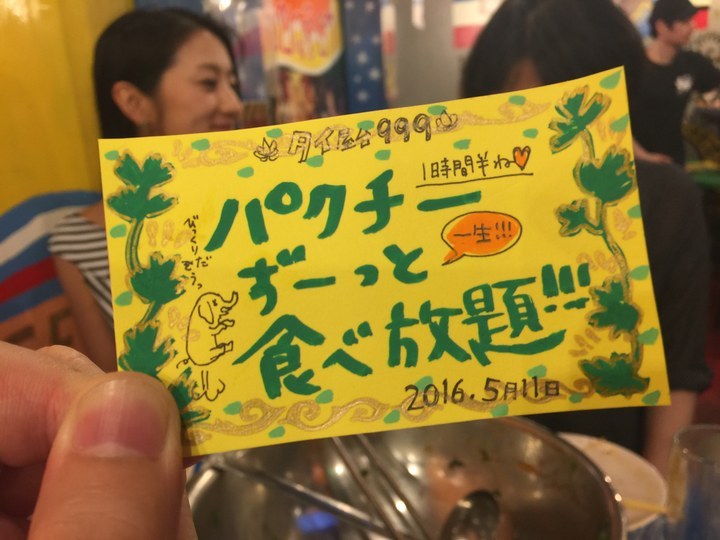 タイ屋台999
1時間半ね♡
パクチー
一生!!!
ずーっと
びっくりだ
ぞうっ
食べ放題!!!
2016.5月11日